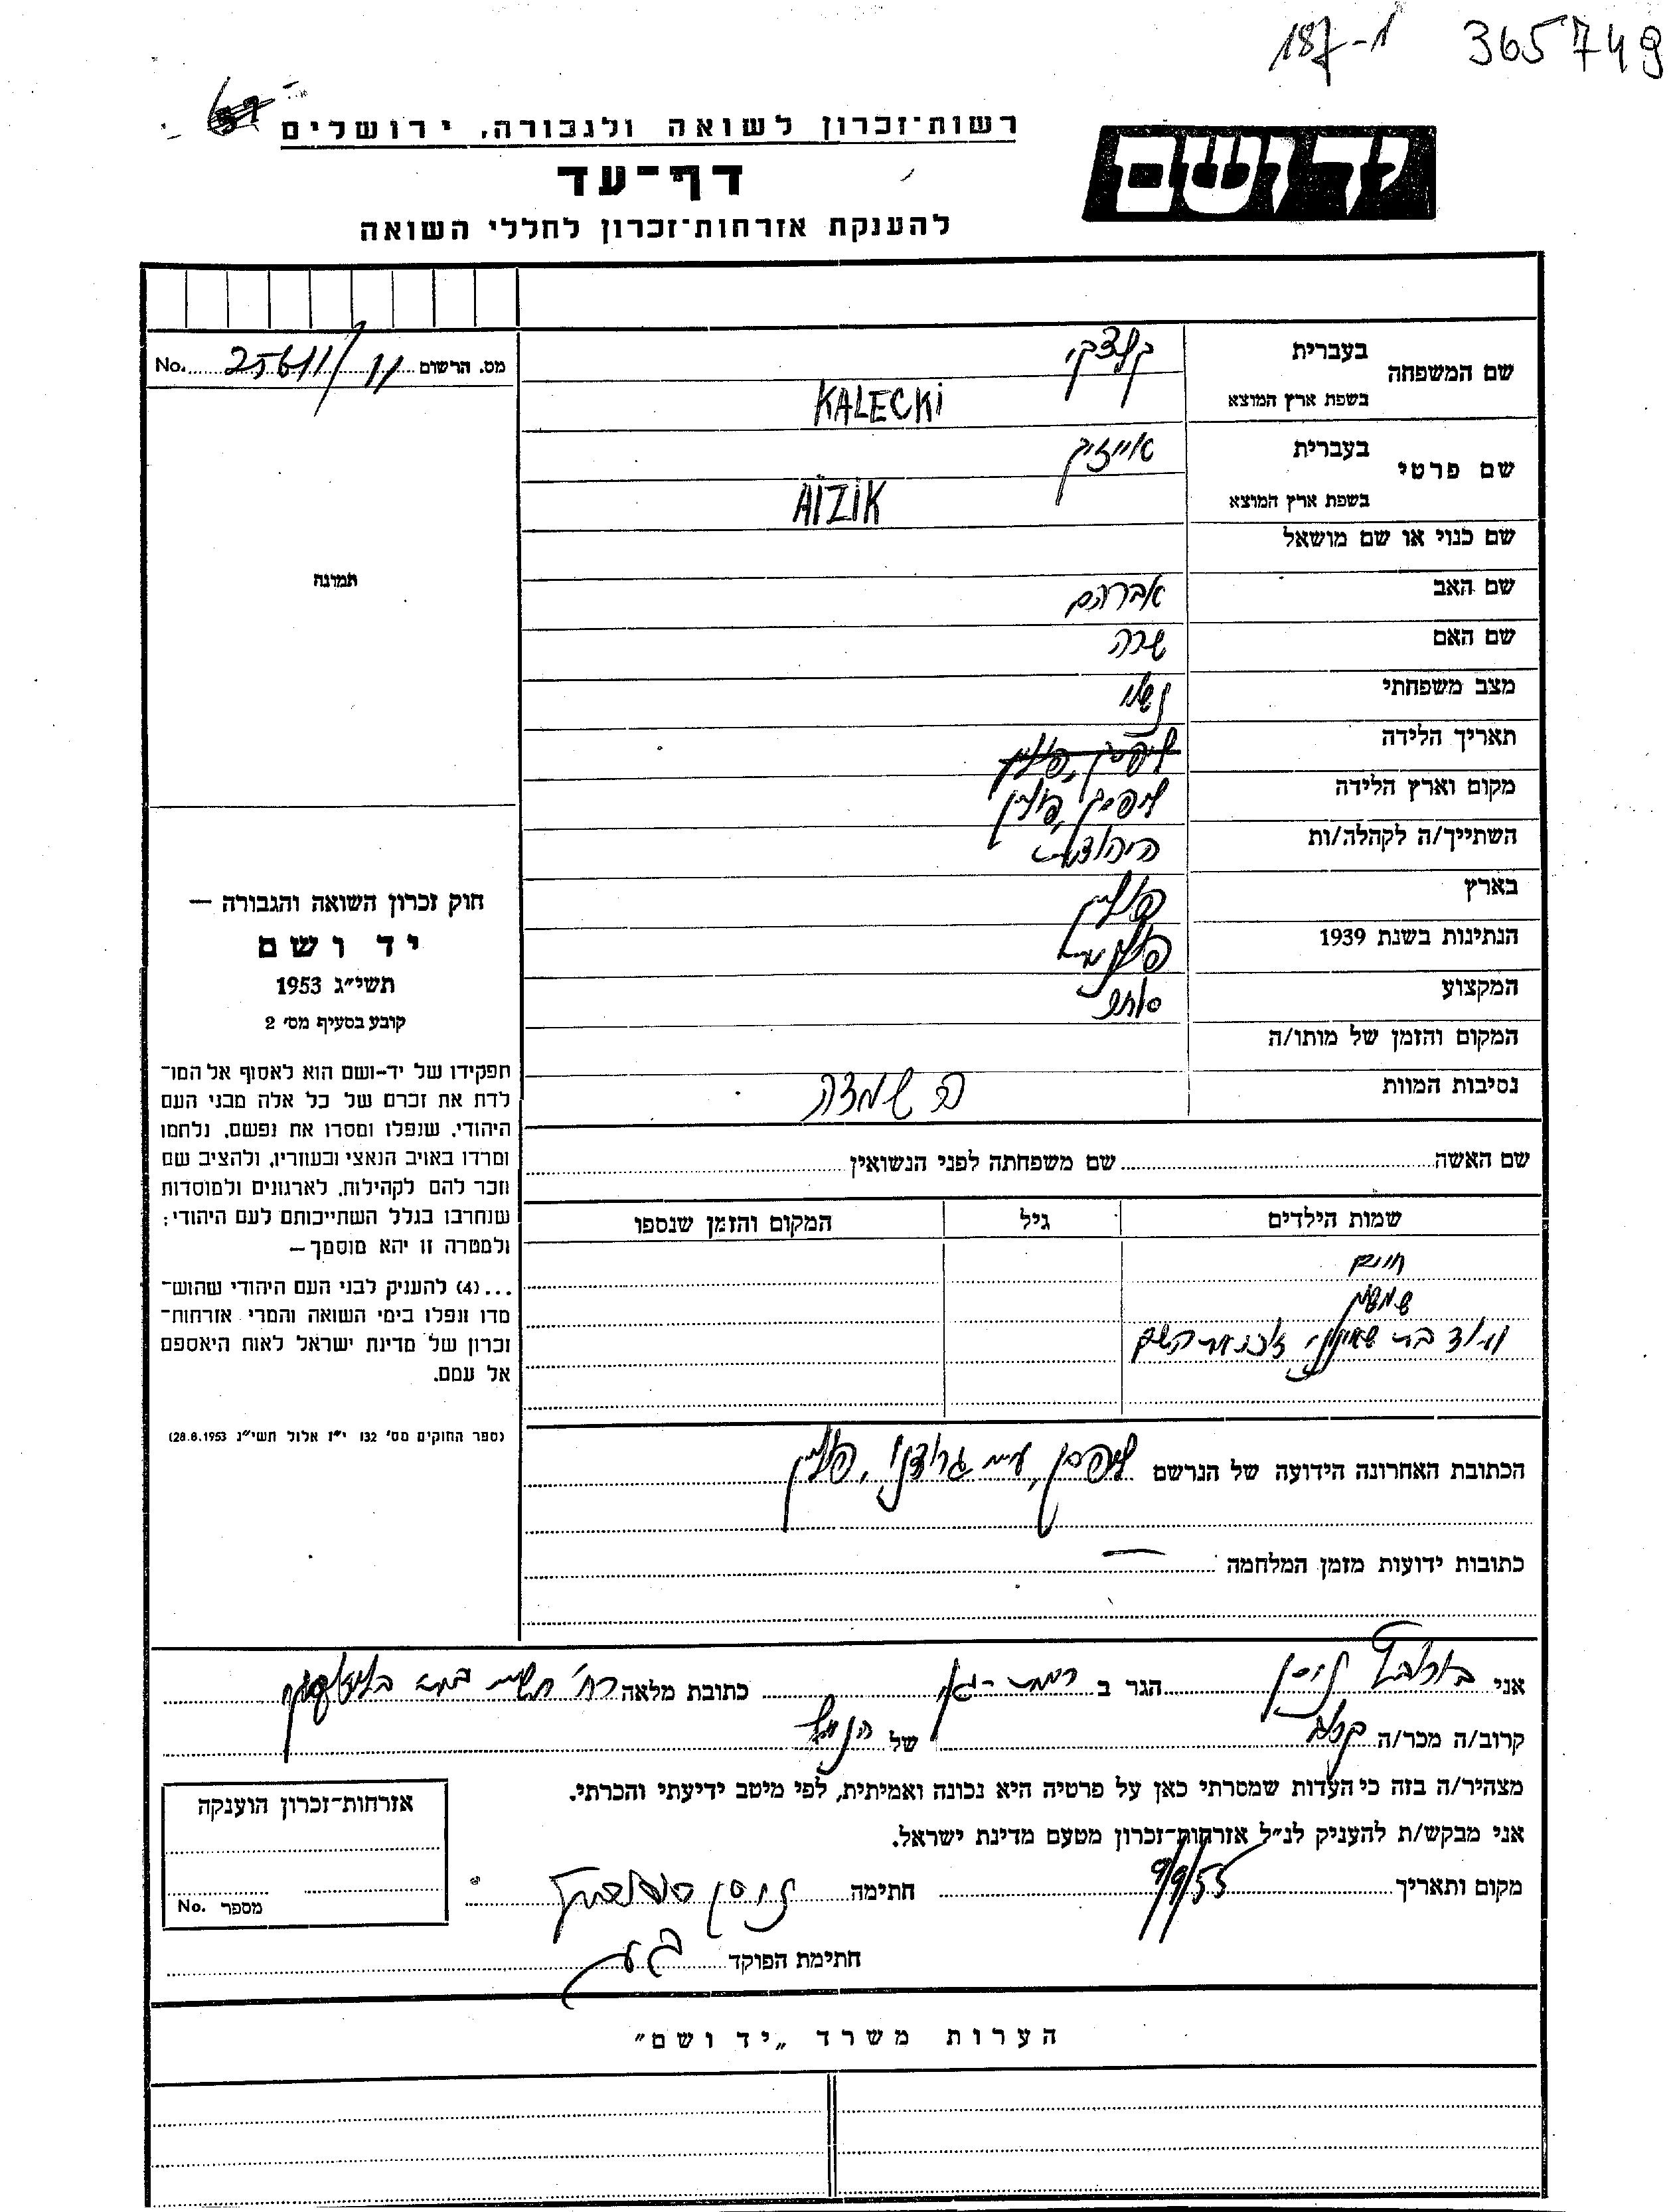 187-א 365749
רשות־זכרון לשואה ולגבורה, ירושלים
יד ושם
דף־עד
להענקת אזרחות־זכרון לחללי השואה
מס. הרשום 25611/11 No.
שם המשפחה
בעברית קלצקי
בשפת ארץ המוצא KALECKI
שם פרטי
בעברית אייזיק
בשפת ארץ המוצא AIZIK
שם כנוי או שם מושאל
תמונה
שם האב אברהם
שם האם שרה
מצב משפחתי נשוי
תאריך הלידה
מקום וארץ הלידה ליפסק, פולין
השתייך/ה לקהלה/ות היהודית
בארץ פולין
הנתינות בשנת 1939 פולנית
המקצוע סוחר
המקום והזמן של מותו/ה
נסיבות המוות השמדה
שם האשה שם משפחתה לפני הנשואין
שמות הילדים גיל המקום והזמן שנספו
חיים
שמשון
ועוד בת שאינני זוכר את השם
חוק זכרון השואה והגבורה —
יד ושם
תשי״ג 1953
קובע בסעיף מס׳ 2
תפקידו של יד-ושם הוא לאסוף אל המו־
לדת את זכרם של כל אלה מבני העם
היהודי, שנפלו ומסרו את נפשם, נלחמו
ומרדו באויב הנאצי ובעוזריו, ולהציב שם
וזכר להם לקהילות, לארגונים ולמוסדות
שנחרבו בגלל השתייכותם לעם היהודי;
ולמטרה זו יהא מוסמך—
...(4) להעניק לבני העם היהודי שהוש־
מדו ונפלו בימי השואה והמרי אזרחות־
זכרון של מדינת ישראל לאות היאספם
אל עמם.
(ספר החוקים מס׳ 132 י״ז אלול תשי״ג 28.8.1953)
הכתובת האחרונה הידועה של הנרשם ליפסק, ע״י גרודנו, פולין
כתובות ידועות מזמן המלחמה —
אני ניסן הגר ב רמת-גן כתובת מלאה רח׳
קרוב/ה מכר/ה קרוב של הנ״ל
מצהיר/ה בזה כי העדות שמסרתי כאן על פרטיה היא נכונה ואמיתית, לפי מיטב ידיעתי והכרתי.
אני מבקש/ת להעניק לנ״ל אזרחות־זכרון מטעם מדינת ישראל.
מקום ותאריך 9/9/55 חתימה ניסן
חתימת הפוקד
אזרחות־זכרון הוענקה
מספר No.
הערות משרד „יד ושם״